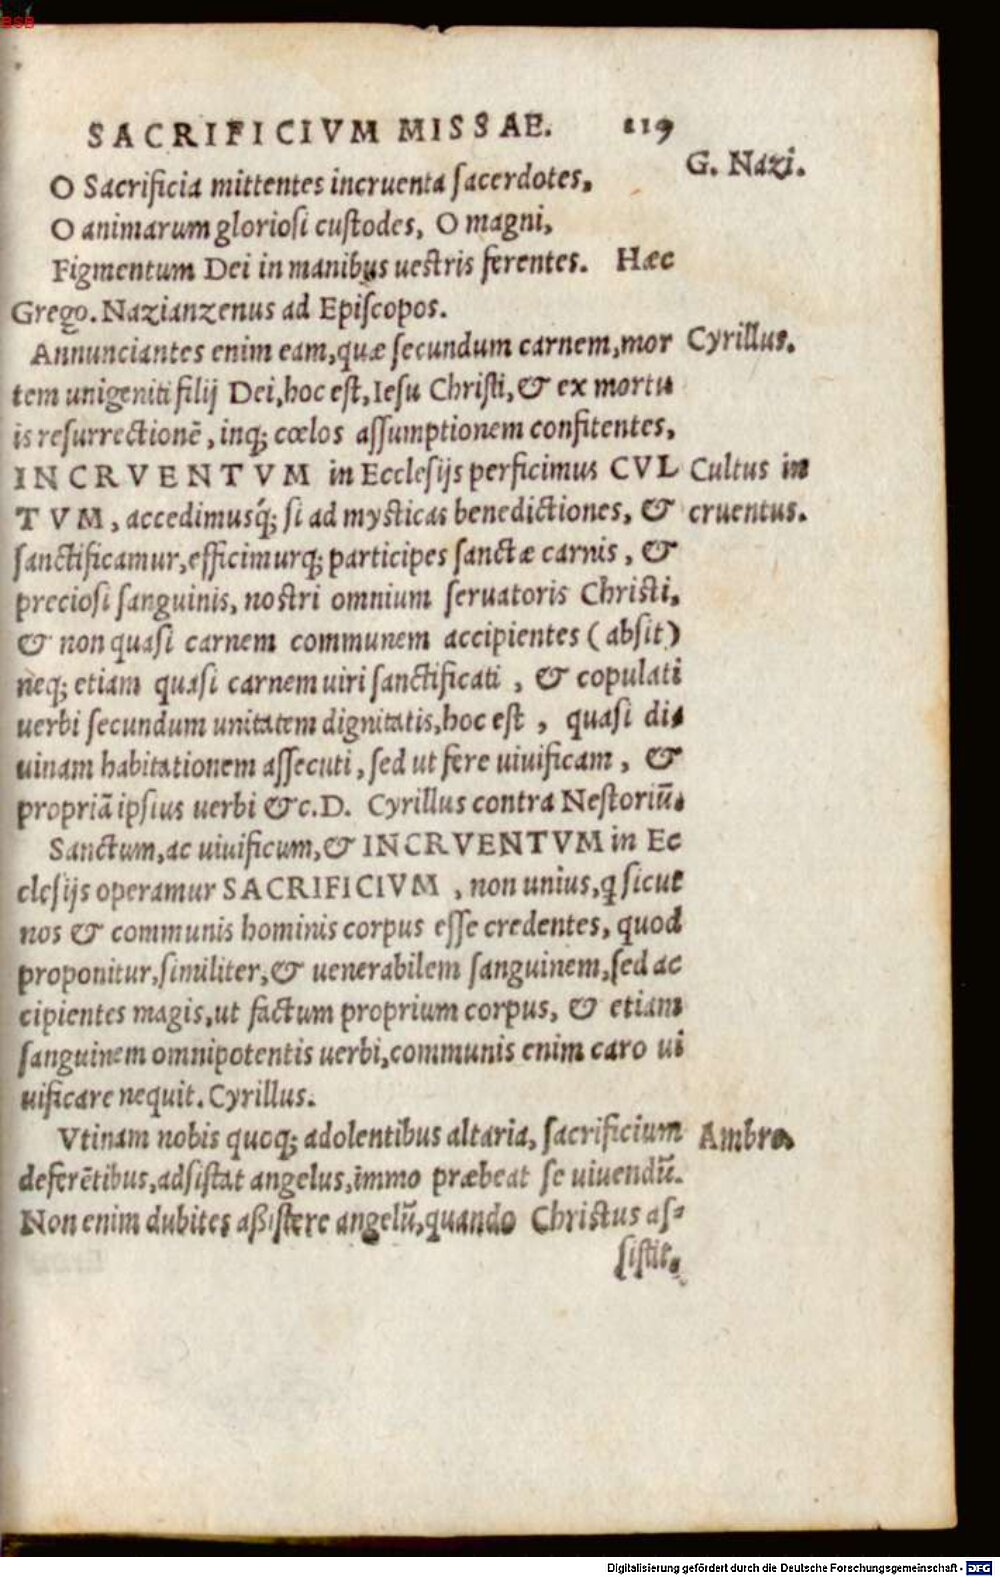 BSB
SACRIFICIVM MISSAE. 119
G. Nazi.
O Sacrificia mittentes incruenta sacerdotes,
O animarum gloriosi custodes, O magni,
Figmentum Dei in manibus uestris ferentes. Hæc
Grego. Nazianzenus ad Episcopos.
Annunciantes enim eam, quæ secundum carnem, mor
Cyrillus.
tem unigeniti filij Dei, hoc est, Iesu Christi, & ex mortu
is resurrectionē, inq; cœlos assumptionem confitentes,
INCRVENTVM in Ecclesijs perficimus CVL
Cultus in
TVM, accedimusq́; si ad mysticas benedictiones, &
cruentus.
sanctificamur, efficimurq; participes sanctæ carnis, &
preciosi sanguinis, nostri omnium seruatoris Christi,
& non quasi carnem communem accipientes (absit)
neq; etiam quasi carnem uiri sanctificati, & copulati
uerbi secundum unitatem dignitatis, hoc est, quasi di-
uinam habitationem assecuti, sed ut fere uiuificam, &
propriā ipsius uerbi &c. D. Cyrillus contra Nestoriū.
Sanctum, ac uiuificum, & INCRVENTVM in Ec
clesijs operamur SACRIFICIVM, non unius, q̃ sicut
nos & communis hominis corpus esse credentes, quod
proponitur, similiter, & uenerabilem sanguinem, sed ac
cipientes magis, ut factum proprium corpus, & etiam
sanguinem omnipotentis uerbi, communis enim caro ui
uificare nequit. Cyrillus.
Vtinam nobis quoq; adolentibus altaria, sacrificium
Ambro.
deferētibus, adsistat angelus, immo præbeat se uiuendū.
Non enim dubites aßistere angelū, quando Christus as-
sistit.
Digitalisierung gefördert durch die Deutsche Forschungsgemeinschaft - DFG